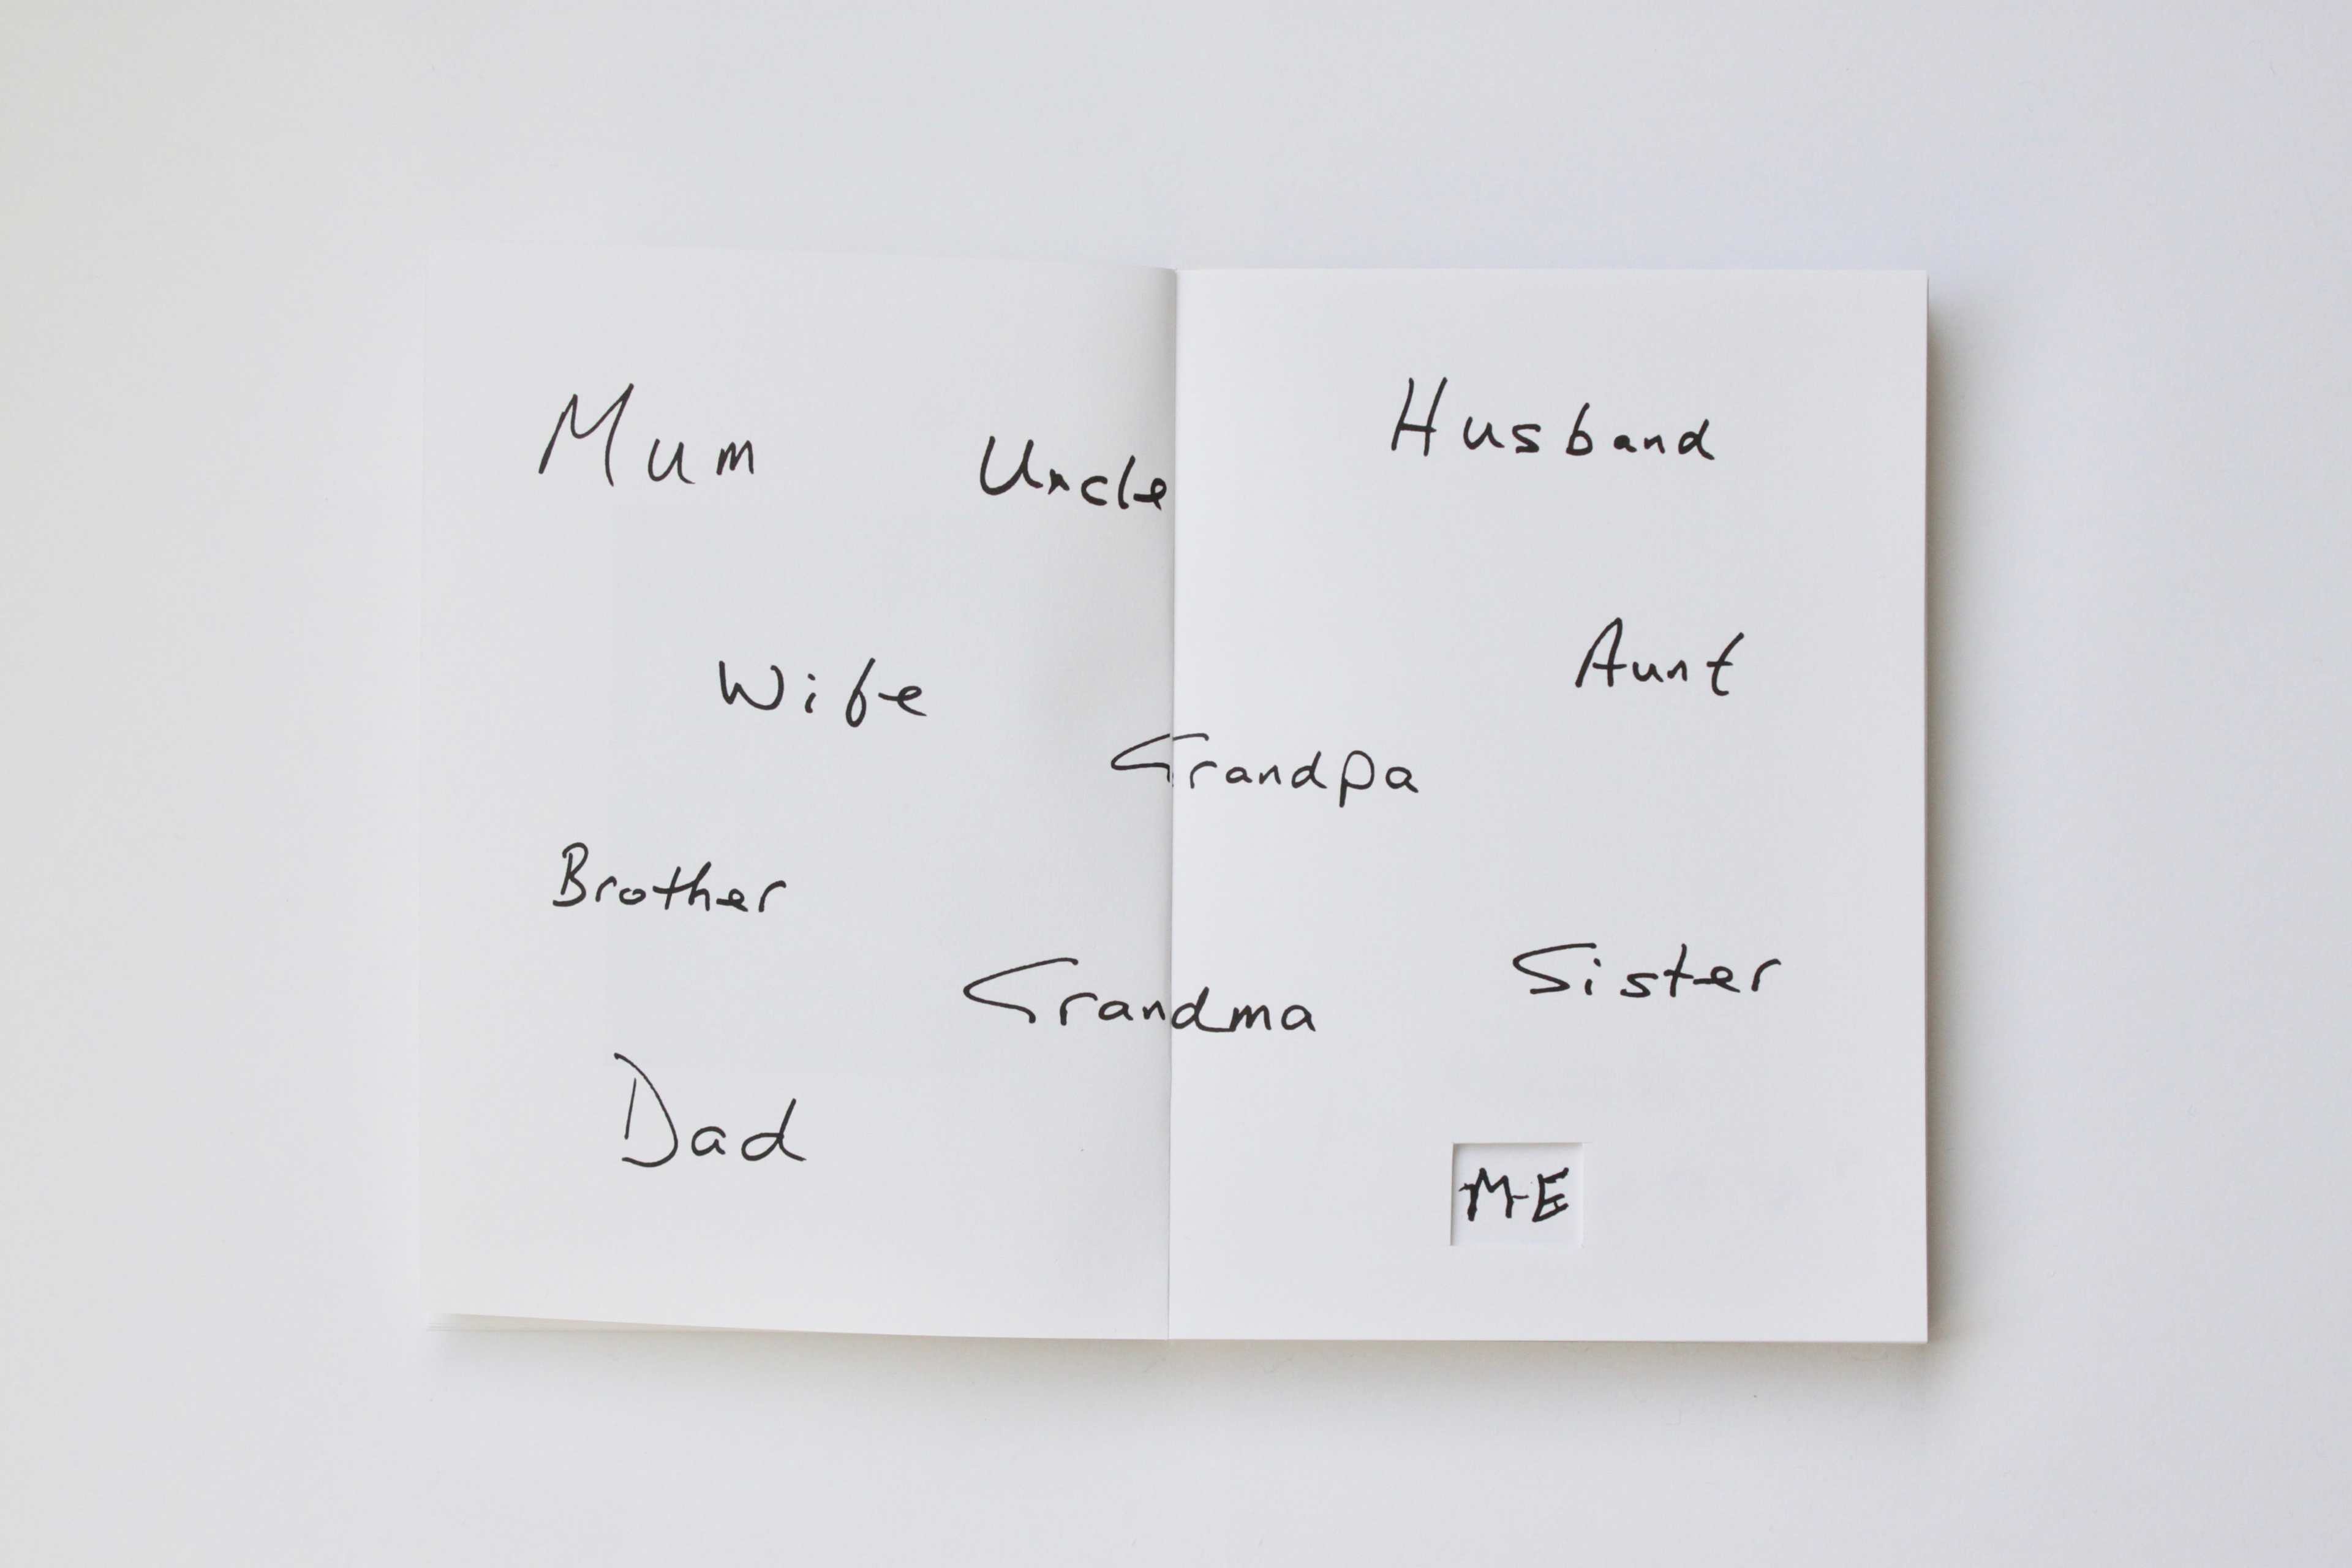 Mum
Uncle
Husband
Wife
Aunt
Grandpa
Brother
Grandma
Sister
Dad
ME